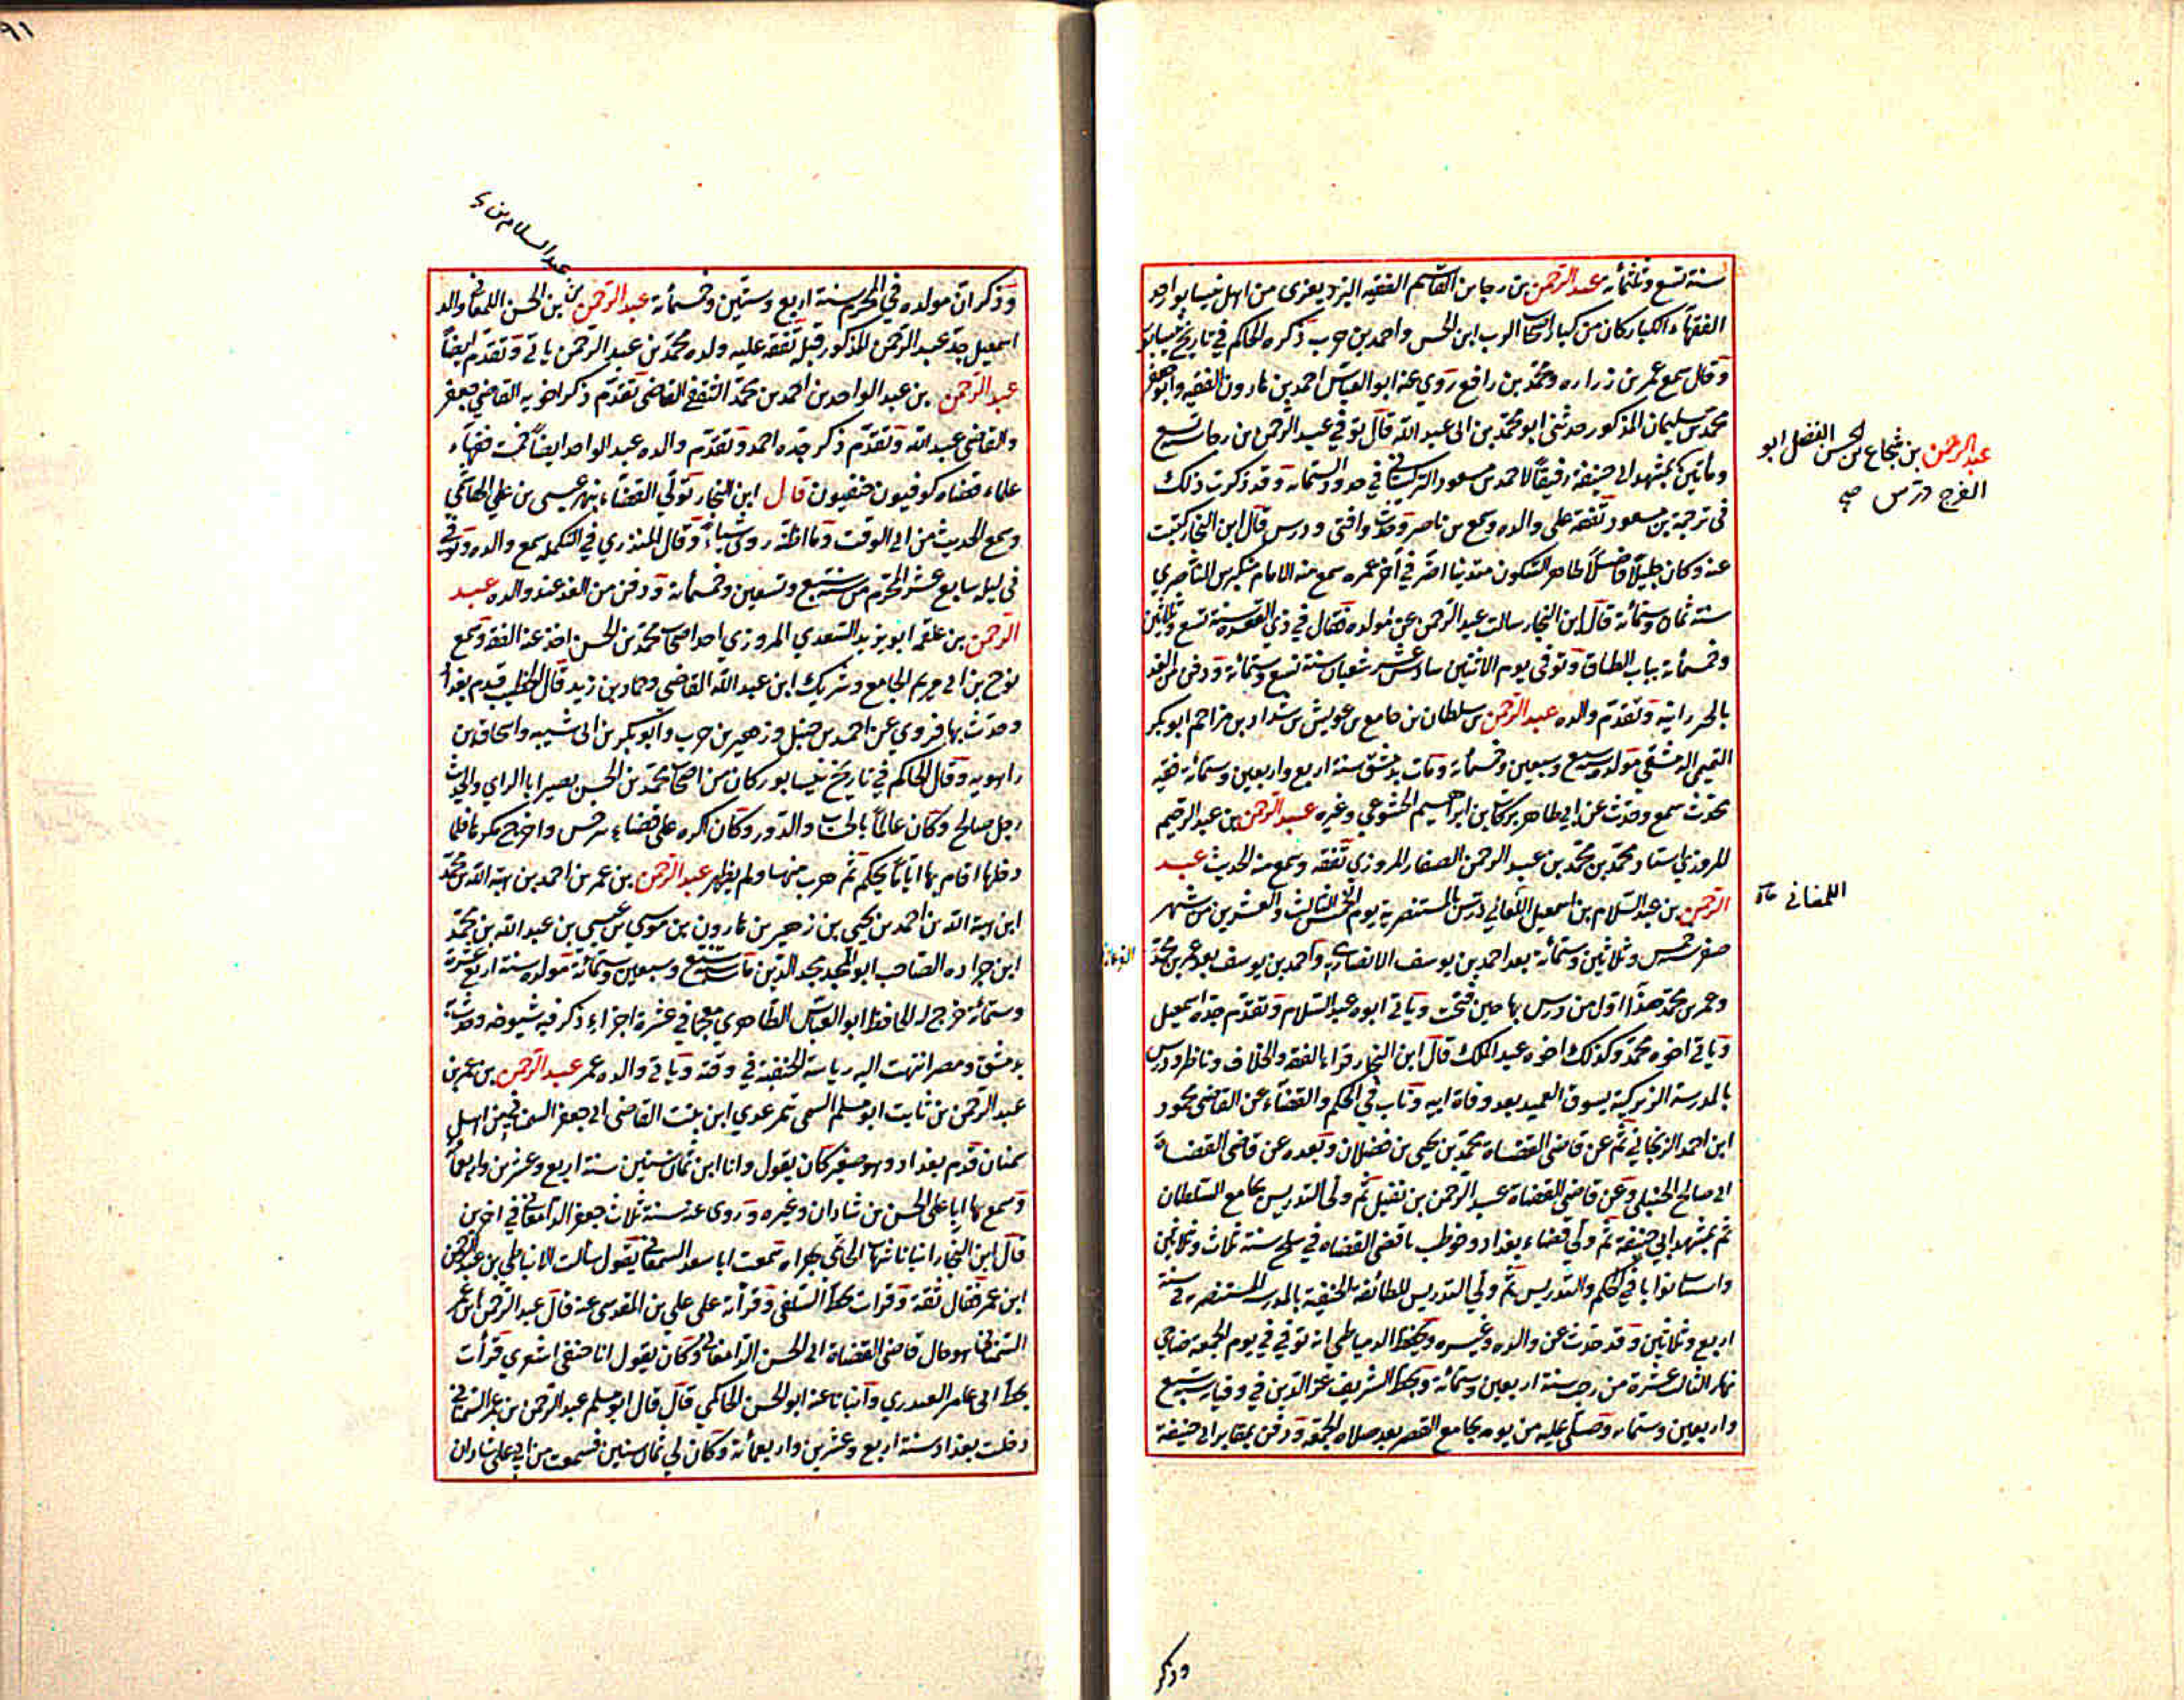 سنة تسع وثلثمأية عبد الرحمن بن رجا بن القاسم الفقيه اليزديغزى من اهل نيسابور احد
الفقهاء الكبار كان من كبار اصحاب ايوب ابن الحسن واحمد بن حرب ذكره الحاكم في تاريخ نيسابور
وقال سمع عمر بن زراره ومحمد بن رافع روي عنه ابو العباس احمد بن هارون الفقيه وابو جعفر
محمد بن سليمان المذكور حدثنى ابو محمد بن ابى عبد الله قال توفي عبد الرحمن بن رجا سنة تسع
ومأتين بمشهد ابي حنيفة رفيقاً لاحمد بن مسعود التركستاني في حدود الستمايه وقد ذكرت ذلك
فى ترجمة بن مسعود تفقه على والده وسمع من ناصر وحدث وافتى ودرس قال ابن النجار كتبت
عنه وكان جليلاً فاضلاً طاهر السكون متدينا اضر في آخر عمره سمع منه الامام منكبرس الناصري
سنة ثمان وستمأئة قال ابن النجار سالت عبد الرحمن عن مولده فقال في ذي القعدة سنة تسع وثلثين
وخمسمأئة بباب الطاق وتوفى يوم الاثنين سادس عشر شعبان سنة تسع وستمأئة ودفن من الغد
بالخيزرانية وتقدم والده عبد الرحمن بن سلطان بن جامع بن عويش بن شداد بن مزاحم ابو بكر
التميمى الدمشقى مولده سبع وسبعين وخمسمأئة ومات بدمشق سنة اربع واربعين وستمأئة فقيه
محدث سمع وحدث عن ابي طاهر بركات بن ابراهيم الخشوعي وغيره عبد الرحمن بن عبد الرحيم
المروزي استاد محمد بن محمد بن عبد الرحمن الصفار المروزي تفقه وسمع منه الحديث عبد
الرحمن بن عبد السلام بن اسمعيل اللمغاني درس بالمستنصرية يوم الخميس الثالث والعشرين من شهر
صفر خمس وثلاثين وستمأئة بعد احمد بن يوسف الانصاري واحمد بن يوسف بعد عمر بن محمد
وعمر بن محمد هذا اول من درس بها حين فتحت وياتى ابوه عبد السلام وتقدم جده اسمعيل
وياتى اخوه محمد وكذلك اخوه عبد الملك قال ابن النجار قرا بالفقه والخلاف وناظر ودرس
بالمدرسة الزيركية بسوق العميد بعد وفاة ابيه وناب في الحكم والقضاء عن القاضى محمود
ابن احمد الزنجاني ثم عن قاضى القضاة محمد بن يحيى بن فضلان وبعده عن قاضى القضاة
ابي صالح الحنبلى وعن قاضى القضاة عبد الرحمن بن نفيل ثم ولى التدريس بجامع السلطان
ثم بمشهد ابي حنيفة ثم ولي قضاء بغداد وخوطب باقضى القضاة في سلخ سنة ثلاث وثلاثين
واستنابوا با في الحكم والتدريس ثم ولي التدريس للطائفة الحنفية بالمدرسة المستنصرية في سنة
اربع وثلاثين وقد حدث عن والده وغيره وبخط الدمياطى انه توفي في يوم الجمعة ضاحي
نهار الثالث عشرة من رجب سنة اربعين وستمأئة وبخط الشريف عز الدين في وفياته سبع
واربعين وستمايه وصلى عليه من يومه بجامع القصر بعد صلاة الجمعة ودفن بمقابر ابي حنيفة
وذكر
عبد الرحمن بن شجاع بن الحسن الفضل ابو
الفرج درس صح
اللمغانى
عبد السلام بن
٩١
وذكر ان مولده في المحرم سنة اربع وستين وخمسمأئة عبد الرحمن بن الحسن اللمغانى والد
اسمعيل جد عبد الرحمن المذكور قبله تفقه عليه ولده محمد بن عبد الرحمن ياتى وتقدم ايضاً
عبد الرحمن بن عبد الواحد بن احمد بن محمد الثقفي القاضى تقدم ذكر اخويه القاضي جعفر
والقاضى عبد الله وتقدم ذكر جده احمد وتقدم والده عبد الواحد ايضاً فقهاء
علماء قضاه كوفيون حنفيون قال ابن النجار تولي القضاء بنهر عيسى بن علي الهاشمي
وسمع الحديث من ابي الوقت وما اظنه روى شياء وقال المنذري في التكملة سمع والده وتوفى
في ليلة سابع عشر المحرم من سنة سبع وتسعين وخمسمأئة ودفن من الغد عند والده عبد
الرحمن بن علقمه ابو يزيد السعدي المروزي احد اصحاب محمد بن الحسن اخذ عنه الفقه وسمع
نوح بن ابي مريم الجامع وشريك ابن عبد الله القاضى وحماد بن زيد قال الخطيب قدم بغداد
وحدث بها فروي عن احمد بن حنبل وزهير بن حرب وابو بكر بن ابى شيبه واسحاق بن
راهويه وقال الحاكم في تاريخ نيسابور كان من اصحاب محمد بن الحسن بصيرا بالراي والحديث
رجل صالح وكان عالماً بالحساب والدور وكان اكره على قضاء سرخس واخرج مكرها فلما
دخلها اقام بها اياماً يحكم ثم هرب منها ولم يظهر عبد الرحمن بن عمر بن احمد بن هبة الله بن محمد
ابن هبة الله بن احمد بن يحيى بن زهير بن هارون بن موسي بن عيسى بن عبد الله بن محمد
ابن جراده الصاحب ابو المجد مجد الدين مات سنة سبع وسبعين وستمأئة مولده سنة اربع عشرة
وستمأئة خرج له الحافظ ابو العباس الظاهري معجما في عشرة اجزاء ذكر فيه شيوخه وحدث
بدمشق ومصر انتهت اليه رياسة الحنفية في وقته وياتى والده عمر عبد الرحمن بن عمر بن
عبد الرحمن بن ثابت ابو مسلم السمى ثم عدوي ابن بنت القاضى ابي جعفر السمناني من اهل
سمنان قدم بغداد وهو صغير كان يقول وانا ابن ثمان سنين سنة اربع وعشرين واربعمأئة
وسمع بها ابا على الحسن بن شاذان وغيره وروى عنه سنة ثلاث جعفر الدامغانى في اخرين
قال ابن النجار انبانا شهاب الحاتمي بهراه سمعت ابا سعد السمعانى يقول سالت الانماطي بن عبد الرحمن
ابن عمر فقال ثقة وقرات بخط السلفى وقرأته على علي بن المقدسى عنه قال عبد الرحمن ابن عمر
السمنانى هو خال قاضى القضاة ابى الحسن الدامغانى وكان يقول انا حنفى اشعري قرأت
بخط ابي عامر العبدري وانبانا عنه ابو الحسن الحاكمي قال قال ابو مسلم عبد الرحمن بن عمر السمنانى
دخلت بغداد سنة اربع وعشرين واربعمأئة وكان لي ثمان سنين فسمعت من ابي على شاذان